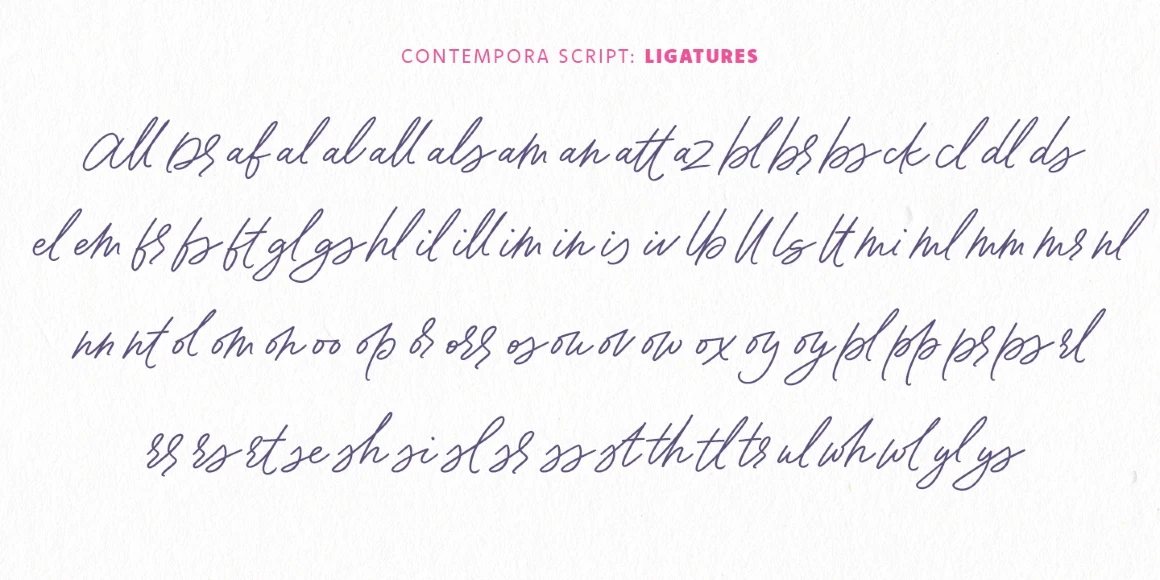 CONTEMPORA SCRIPT: LIGATURES
All Dr af al al all als am an att az bl br bs ck cl dl ds
el em fr fs ft gl gs hl il ill im in is iv lb ll ls lt mi ml mm mr nl
nn nt ol om on oo op or orr os ou ov ow ox oy oy pl pp pr ps rl
rr rs rt se sh si sl sr ss st th tl tr ul wh wl yl ys